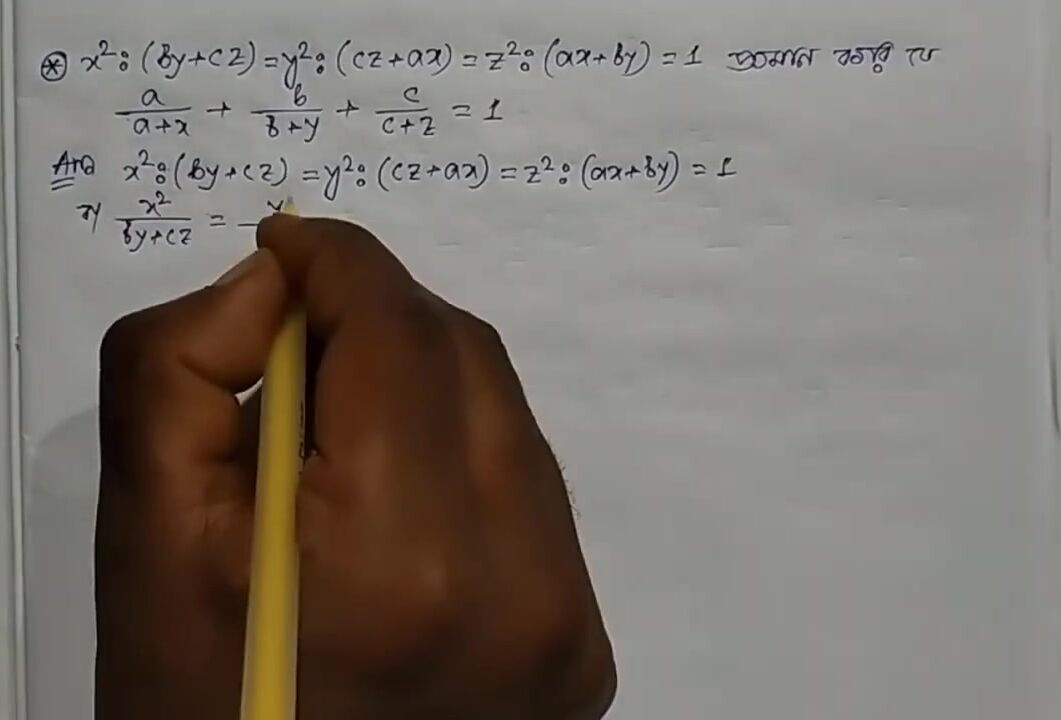 ⊛ x²:(by+cz)=y²:(cz+ax)=z²:(ax+by)=1 প্রমান করি যে
a/(a+x) + b/(b+y) + c/(c+z) = 1
Ans x²:(by+cz)=y²:(cz+ax)=z²:(ax+by)=1
বা x²/(by+cz) = y